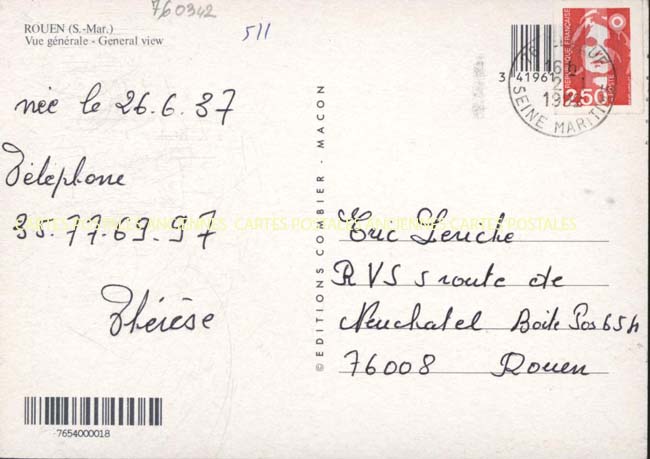 760342
511
ROUEN (S.-Mar.)
Vue générale - General view
née le 26.6.37
Téléphone
35.77.69.97
Thérèse
7654000018
© EDITIONS COMBIER - MACON
3 41961
REPUBLIQUE FRANÇAISE
2,50
SEINE MARITIME
CARTES POSTALES ANCIENNES CARTES POSTALES ANCIENNES CARTES POSTALES
Eric Leriche
RVS 5 route de
Neuchatel Boite Pos 654
76008 Rouen